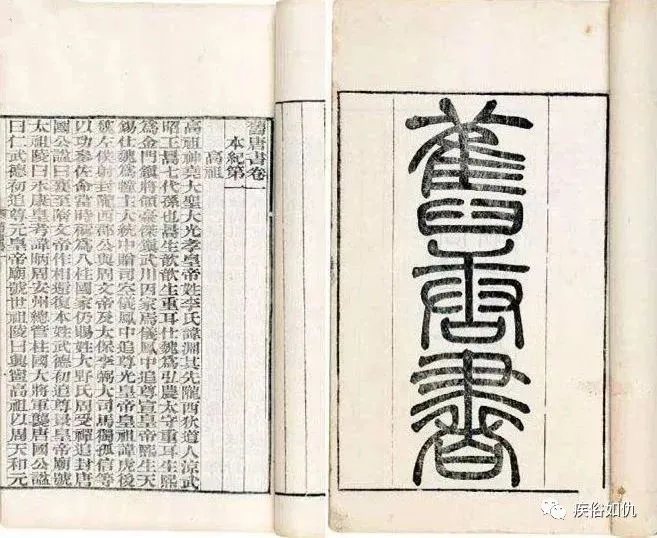 舊唐書
舊唐書卷一
本紀第一
高祖
高祖神堯大聖大光孝皇帝姓李氏諱淵其先隴西狄道人涼武
昭王暠七代孫也暠生歆歆生重耳仕魏爲弘農太守重耳生熙
爲金門鎮將領豪傑鎮武川因家焉儀鳳中追尊宣皇帝熙生天
錫仕魏爲幢主大統中贈司空儀鳳中追尊光皇帝皇祖諱虎後
魏左僕射封隴西郡公與周文帝及太保李弼大司馬獨孤信等
以功參佐命當時稱爲八柱國家仍賜姓大野氏周受禪追封唐
國公諡曰襄至隋文帝作相還復本姓武德初追尊景皇帝廟號
太祖陵曰永康皇考諱昞周安州總管柱國大將軍襲唐國公諡
曰仁武德初追尊元皇帝廟號世祖陵曰興寧高祖以周天和元
疾俗如仇